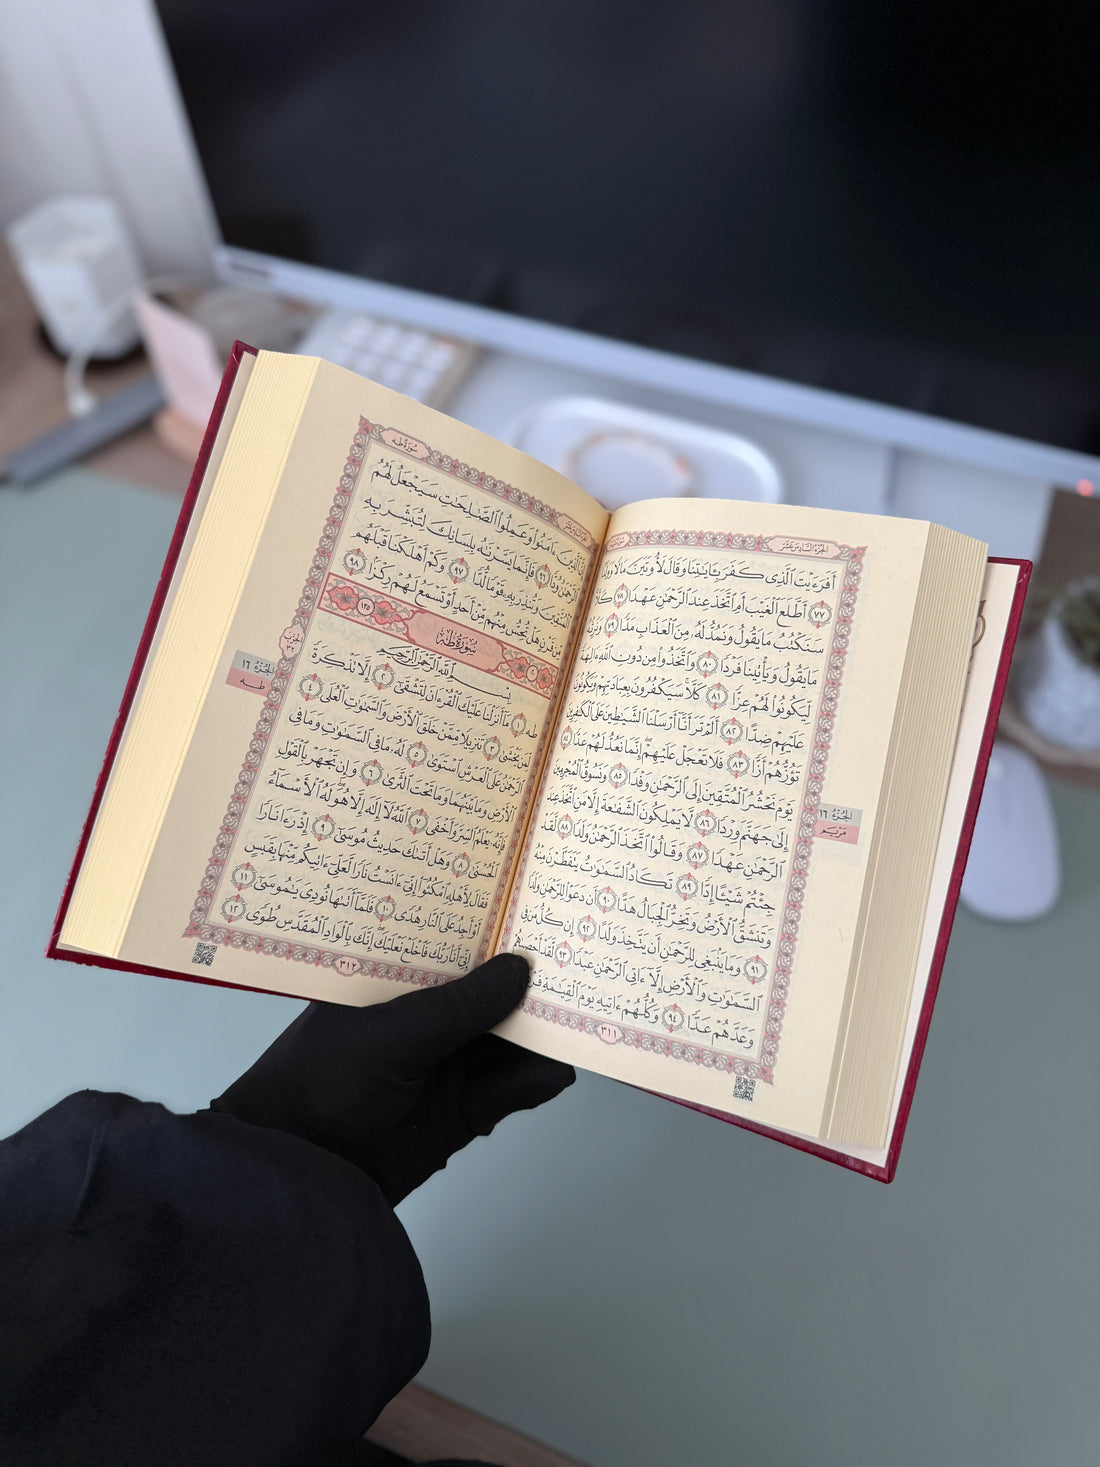 الجُزْءُ السَّادِسَ عَشَرَ
أَفَرَءَيْتَ ٱلَّذِى كَفَرَ بِـَٔايَٰتِنَا وَقَالَ لَأُوتَيَنَّ مَالًا وَوَلَدًا
٧٧ أَطَّلَعَ ٱلْغَيْبَ أَمِ ٱتَّخَذَ عِندَ ٱلرَّحْمَٰنِ عَهْدًا ٧٨ كَلَّا
سَنَكْتُبُ مَا يَقُولُ وَنَمُدُّ لَهُۥ مِنَ ٱلْعَذَابِ مَدًّا ٧٩ وَنَرِثُهُۥ
مَا يَقُولُ وَيَأْتِينَا فَرْدًا ٨٠ وَٱتَّخَذُوا۟ مِن دُونِ ٱللَّهِ ءَالِهَةً
لِّيَكُونُوا۟ لَهُمْ عِزًّا ٨١ كَلَّا سَيَكْفُرُونَ بِعِبَادَتِهِمْ وَيَكُونُونَ
عَلَيْهِمْ ضِدًّا ٨٢ أَلَمْ تَرَ أَنَّآ أَرْسَلْنَا ٱلشَّيَٰطِينَ عَلَى ٱلْكَٰفِرِينَ
تَؤُزُّهُمْ أَزًّا ٨٣ فَلَا تَعْجَلْ عَلَيْهِمْ إِنَّمَا نَعُدُّ لَهُمْ عَدًّا ٨٤
يَوْمَ نَحْشُرُ ٱلْمُتَّقِينَ إِلَى ٱلرَّحْمَٰنِ وَفْدًا ٨٥ وَنَسُوقُ ٱلْمُجْرِمِينَ
إِلَىٰ جَهَنَّمَ وِرْدًا ٨٦ لَّا يَمْلِكُونَ ٱلشَّفَٰعَةَ إِلَّا مَنِ ٱتَّخَذَ عِندَ
ٱلرَّحْمَٰنِ عَهْدًا ٨٧ وَقَالُوا۟ ٱتَّخَذَ ٱلرَّحْمَٰنُ وَلَدًا ٨٨ لَّقَدْ
جِئْتُمْ شَيْـًٔا إِدًّا ٨٩ تَكَادُ ٱلسَّمَٰوَٰتُ يَتَفَطَّرْنَ مِنْهُ
وَتَنشَقُّ ٱلْأَرْضُ وَتَخِرُّ ٱلْجِبَالُ هَدًّا ٩٠ أَن دَعَوْا۟ لِلرَّحْمَٰنِ وَلَدًا
٩١ وَمَا يَنۢبَغِى لِلرَّحْمَٰنِ أَن يَتَّخِذَ وَلَدًا ٩٢ إِن كُلُّ مَن فِى
ٱلسَّمَٰوَٰتِ وَٱلْأَرْضِ إِلَّآ ءَاتِى ٱلرَّحْمَٰنِ عَبْدًا ٩٣ لَّقَدْ أَحْصَىٰهُمْ
وَعَدَّهُمْ عَدًّا ٩٤ وَكُلُّهُمْ ءَاتِيهِ يَوْمَ ٱلْقِيَٰمَةِ
٣١١
الجُزْءُ ١٦
مَرْيَم
سُورَةُ طه
إِنَّ ٱلَّذِينَ ءَامَنُوا۟ وَعَمِلُوا۟ ٱلصَّٰلِحَٰتِ سَيَجْعَلُ لَهُمُ
ٱلرَّحْمَٰنُ وُدًّا ٩٦ فَإِنَّمَا يَسَّرْنَٰهُ بِلِسَانِكَ لِتُبَشِّرَ بِهِ
ٱلْمُتَّقِينَ وَتُنذِرَ بِهِۦ قَوْمًا لُّدًّا ٩٧ وَكَمْ أَهْلَكْنَا قَبْلَهُم
مِّن قَرْنٍ هَلْ تُحِسُّ مِنْهُم مِّنْ أَحَدٍ أَوْ تَسْمَعُ لَهُمْ رِكْزًۢا ٩٨
سُورَةُ طه ١٣٥
بِسْمِ ٱللَّهِ ٱلرَّحْمَٰنِ ٱلرَّحِيمِ
طه ١ مَآ أَنزَلْنَا عَلَيْكَ ٱلْقُرْءَانَ لِتَشْقَىٰٓ ٢ إِلَّا تَذْكِرَةً
لِّمَن يَخْشَىٰ ٣ تَنزِيلًا مِّمَّنْ خَلَقَ ٱلْأَرْضَ وَٱلسَّمَٰوَٰتِ ٱلْعُلَى ٤
ٱلرَّحْمَٰنُ عَلَى ٱلْعَرْشِ ٱسْتَوَىٰ ٥ لَهُۥ مَا فِى ٱلسَّمَٰوَٰتِ وَمَا فِى
ٱلْأَرْضِ وَمَا بَيْنَهُمَا وَمَا تَحْتَ ٱلثَّرَىٰ ٦ وَإِن تَجْهَرْ بِٱلْقَوْلِ
فَإِنَّهُۥ يَعْلَمُ ٱلسِّرَّ وَأَخْفَى ٧ ٱللَّهُ لَآ إِلَٰهَ إِلَّا هُوَ لَهُ ٱلْأَسْمَآءُ
ٱلْحُسْنَىٰ ٨ وَهَلْ أَتَىٰكَ حَدِيثُ مُوسَىٰٓ ٩ إِذْ رَءَا نَارًا
فَقَالَ لِأَهْلِهِ ٱمْكُثُوٓا۟ إِنِّىٓ ءَانَسْتُ نَارًا لَّعَلِّىٓ ءَاتِيكُم مِّنْهَا بِقَبَسٍ
أَوْ أَجِدُ عَلَى ٱلنَّارِ هُدًى ١٠ فَلَمَّآ أَتَىٰهَا نُودِىَ يَٰمُوسَىٰٓ ١١
إِنِّىٓ أَنَا۠ رَبُّكَ فَٱخْلَعْ نَعْلَيْكَ إِنَّكَ بِٱلْوَادِ ٱلْمُقَدَّسِ طُوًى ١٢
٣١٢
الحِزْبُ ٣٢
الجُزْءُ ١٦
طه